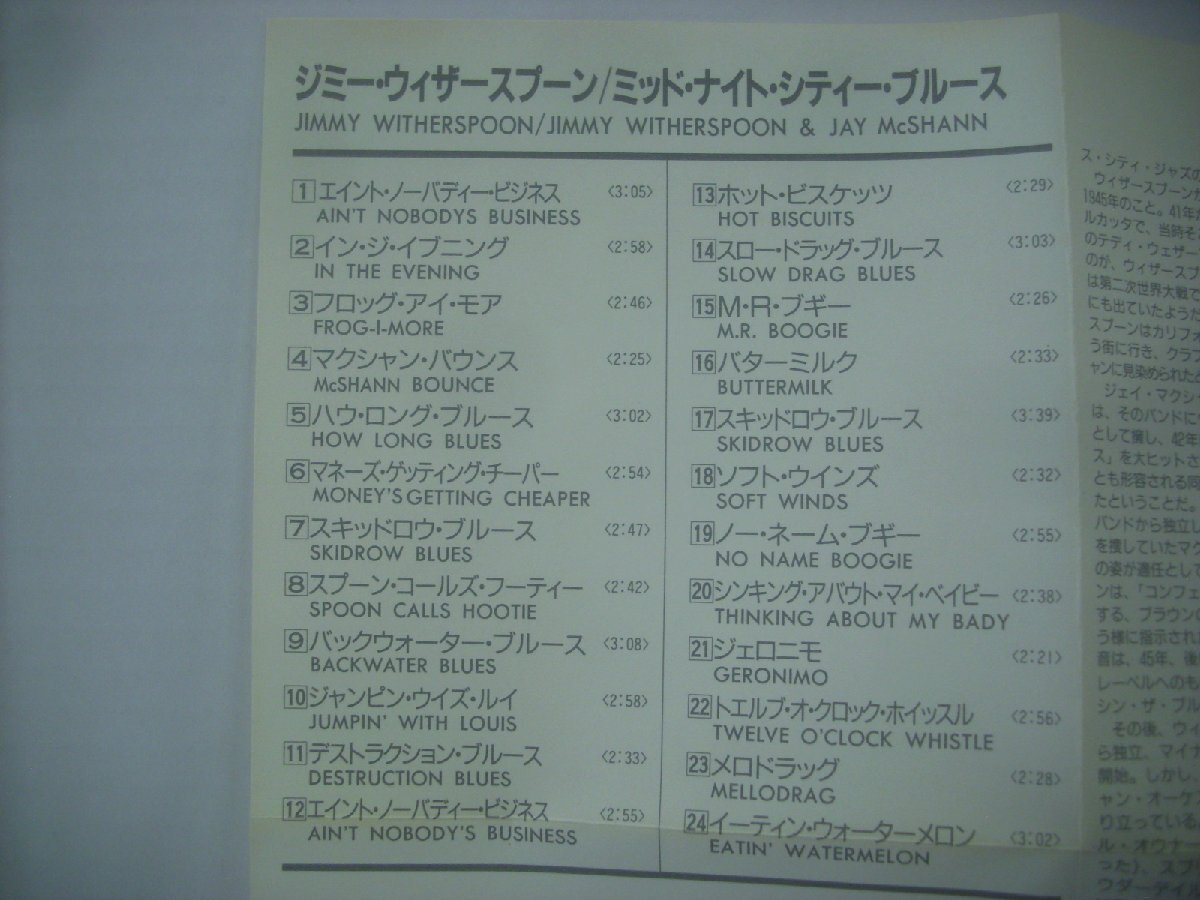 ジミー・ウィザースプーン/ミッド・ナイト・シティー・ブルース
JIMMY WITHERSPOON/JIMMY WITHERSPOON & JAY McSHANN
1 エイント・ノーバディー・ビジネス 〈3:05〉
AIN'T NOBODYS BUSINESS
2 イン・ジ・イブニング 〈2:58〉
IN THE EVENING
3 フロッグ・アイ・モア 〈2:46〉
FROG-I-MORE
4 マクシャン・バウンス 〈2:25〉
McSHANN BOUNCE
5 ハウ・ロング・ブルース 〈3:02〉
HOW LONG BLUES
6 マネーズ・ゲッティング・チーパー 〈2:54〉
MONEY'S GETTING CHEAPER
7 スキッドロウ・ブルース 〈2:47〉
SKIDROW BLUES
8 スプーン・コールズ・フーティー 〈2:42〉
SPOON CALLS HOOTIE
9 バックウォーター・ブルース 〈3:08〉
BACKWATER BLUES
10 ジャンピン・ウイズ・ルイ 〈2:58〉
JUMPIN' WITH LOUIS
11 デストラクション・ブルース 〈2:33〉
DESTRUCTION BLUES
12 エイント・ノーバディー・ビジネス 〈2:55〉
AIN'T NOBODY'S BUSINESS
13 ホット・ビスケッツ 〈2:29〉
HOT BISCUITS
14 スロー・ドラッグ・ブルース 〈3:03〉
SLOW DRAG BLUES
15 M・R・ブギー 〈2:26〉
M.R. BOOGIE
16 バターミルク 〈2:33〉
BUTTERMILK
17 スキッドロウ・ブルース 〈3:39〉
SKIDROW BLUES
18 ソフト・ウインズ 〈2:32〉
SOFT WINDS
19 ノー・ネーム・ブギー 〈2:55〉
NO NAME BOOGIE
20 シンキング・アバウト・マイ・ベイビー 〈2:38〉
THINKING ABOUT MY BADY
21 ジェロニモ 〈2:21〉
GERONIMO
22 トエルブ・オ・クロック・ホイッスル 〈2:56〉
TWELVE O'CLOCK WHISTLE
23 メロドラッグ 〈2:28〉
MELLODRAG
24 イーティン・ウォーターメロン 〈3:02〉
EATIN' WATERMELON
ス・シティ・ジャズの
ウィザースプーンが
1946年のこと。41年
ルカッタで、当時そこ
のテディ・ウェザー
のが、ウィザースプ
は第二次世界大戦で
にも出ていたようだ
スプーンはカリフォ
う街に行き、クラブ
ャンに見染められたと
ジェイ・マクシャ
は、そのバンドに
として擁し、42年
ス」を大ヒットさ
とも形容される同
たということだ。
バンドから独立し
を捜していたマク
の姿が適任として
ンは、「コンフェ
する、ブラウン
う様に指示され
音は、45年、後
レーベルへのも
シン・ザ・ブル
その後、ウィ
ら独立、マイナ
開始。しかし、
ャン・オーケ
り立っている
ル・オウナー
った)、スプ
ウダーデイル